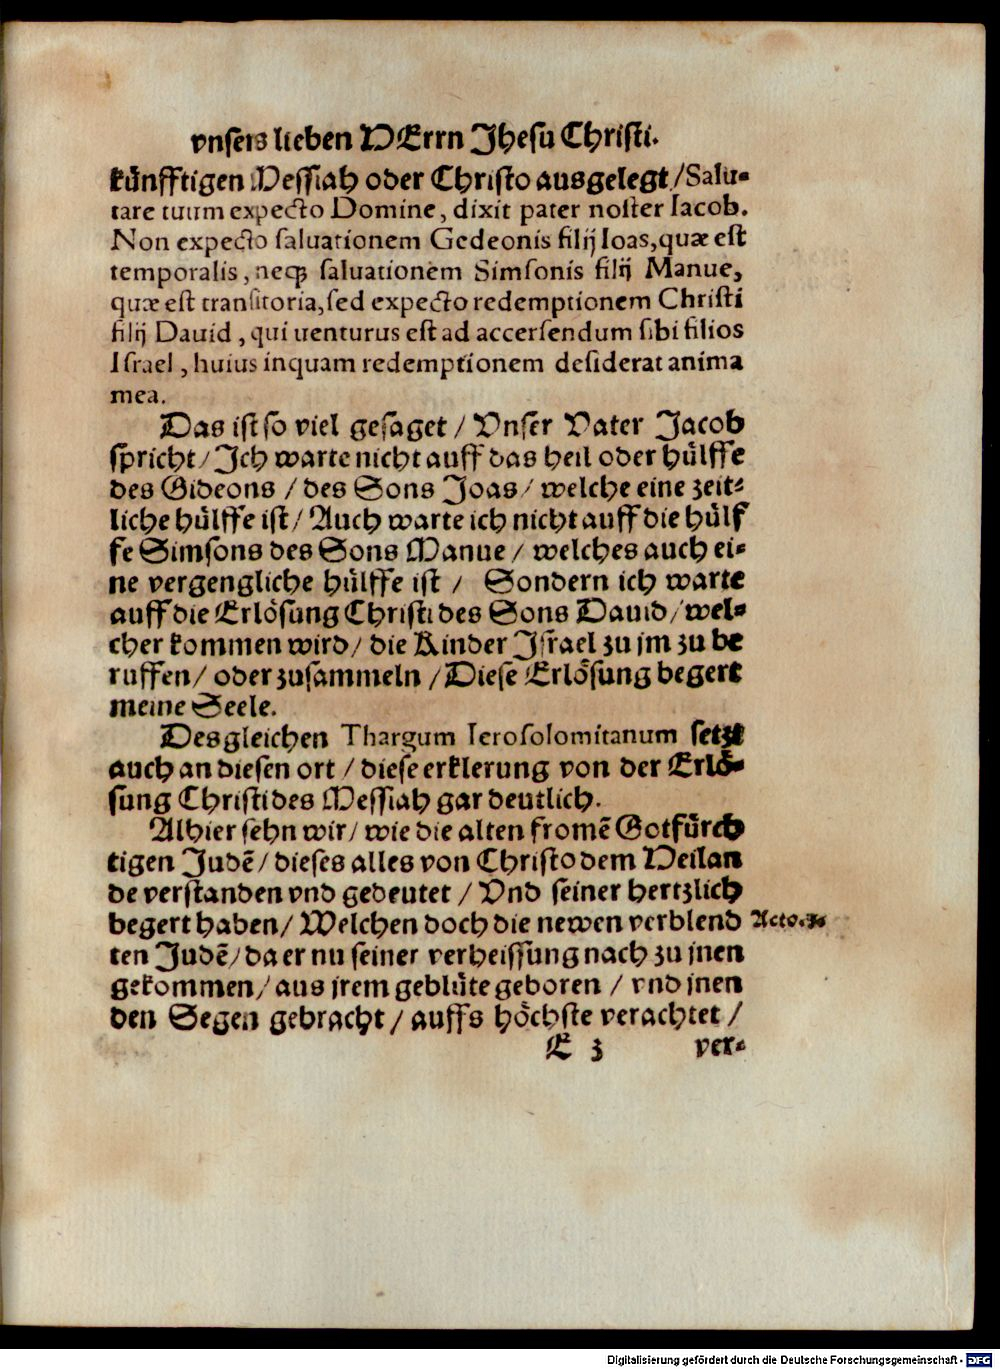 vnsers lieben HErrn Jhesu Christi.
künfftigen Messiah oder Christo ausgelegt / Salu-
tare tuum expecto Domine, dixit pater noster Iacob.
Non expecto saluationem Gedeonis filij Ioas, quæ est
temporalis, neqꝫ saluationem Simsonis filij Manue,
quæ est transitoria, sed expecto redemptionem Christi
filij Dauid, qui uenturus est ad accersendum sibi filios
Israel, huius inquam redemptionem desiderat anima
mea.
Das ist so viel gesaget / Vnser Vater Jacob
spricht / Jch warte nicht auff das heil oder hülffe
des Gideons / des Sons Joas / welche eine zeit-
liche hülffe ist / Auch warte ich nicht auff die hülf
fe Simsons des Sons Manue / welches auch ei-
ne vergengliche hülffe ist / Sondern ich warte
auff die Erlösung Christi des Sons Dauid / wel-
cher kommen wird / die Kinder Jsrael zu jm zu be
ruffen / oder zusammeln / Diese Erlösung begert
meine Seele.
Desgleichen Thargum Ierosolomitanum setzt
auch an diesen ort / diese erklerung von der Erlö-
sung Christi des Messiah gar deutlich.
Alhier sehn wir / wie die alten fromē Gotfürch
tigen Judē / dieses alles von Christo dem Heilan
de verstanden vnd gedeutet / Vnd seiner hertzlich
begert haben / Welchen doch die newen verblend Acto. 3.
ten Judē / da er nu seiner verheissung nach zu jnen
gekommen / aus jrem geblüte geboren / vnd jnen
den Segen gebracht / auffs höchste verachtet /
E 3 ver-
Digitalisierung gefördert durch die Deutsche Forschungsgemeinschaft - DFG